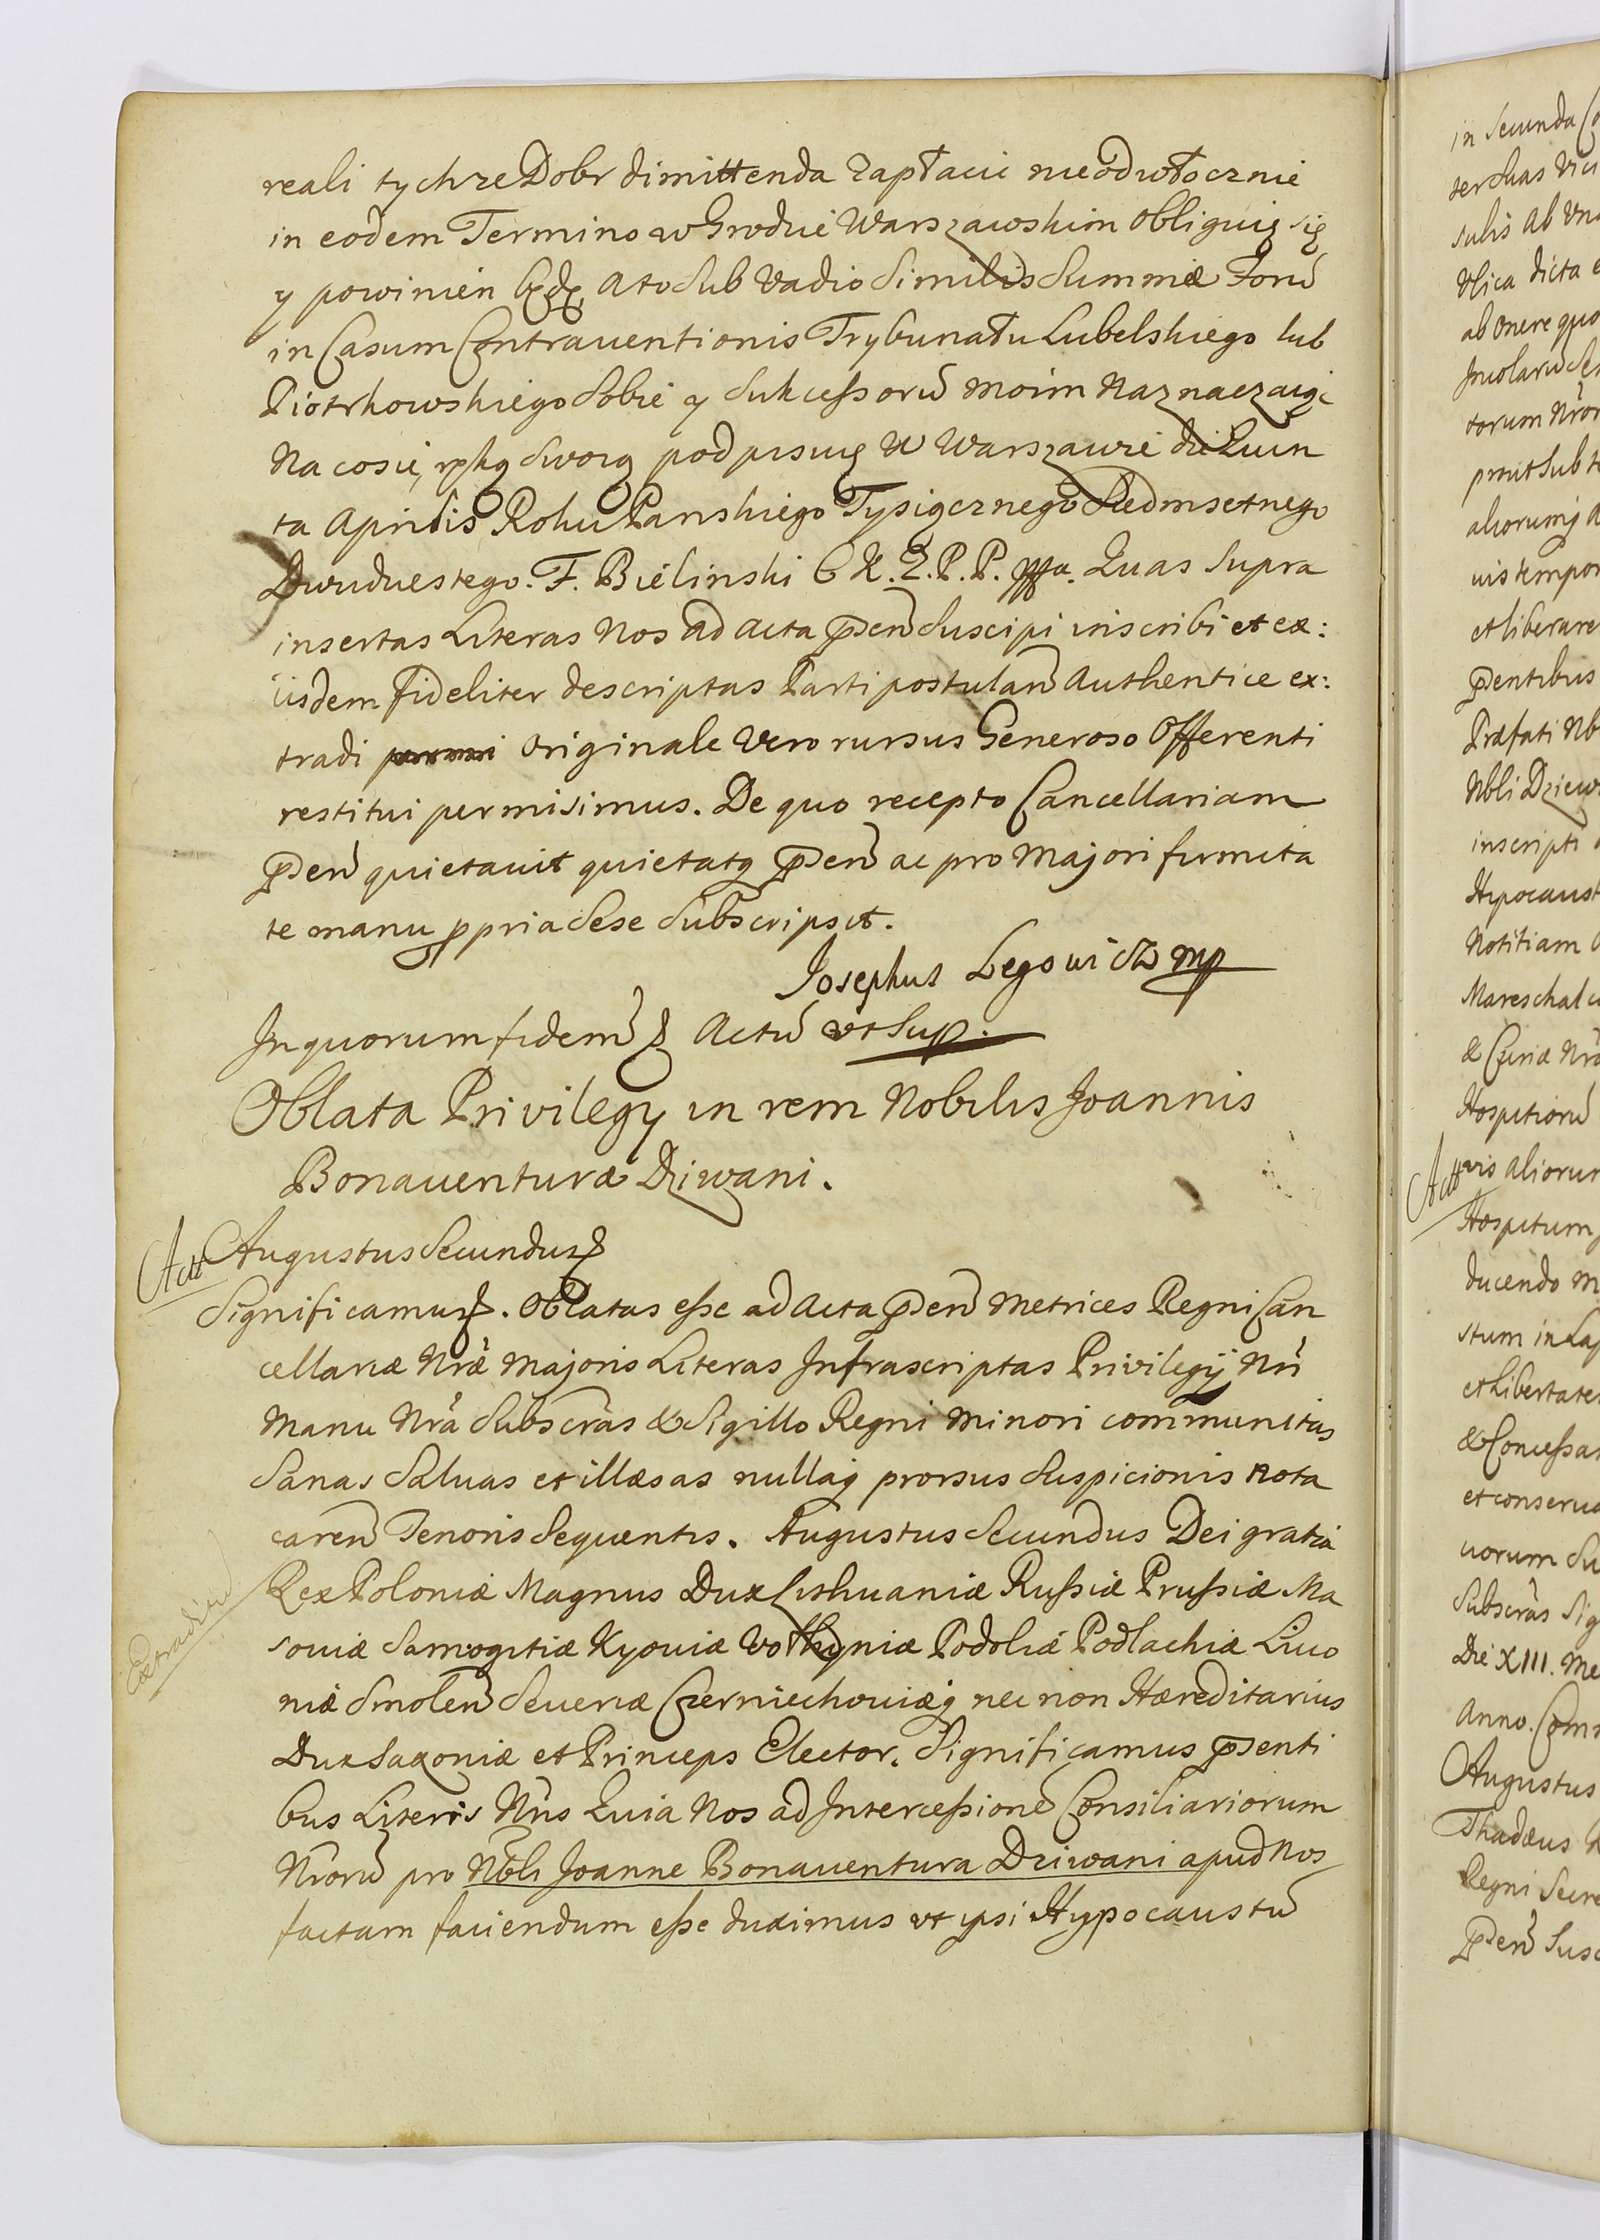 reali tychze Dobr dimittenda zapłacic nieodwłocznie
in eodem Termino w Grodzie Warszawskim obliguię się
y powinien będę, a to sub vadio similis summæ Forũ
in Casum Contrauentionis Trybunału Lubelskiego lub
Piotrkowskiego sobie y sukcessorũ moim naznaczaiąc
Na co się ręką swoią podpisuię w Warszawie die Quin
ta Aprilis Roku Panskiego Tysiącznego Siedmsetnego
Dwudziestego. F. Bielinski C K. Z. P. P. Quas supra
insertas Literas Nos ad acta pñ̃dẽn suscipi inscribi et ex:
iisdem fideliter descriptas Parti postulanẽ authentice ex:
tradi originale vero rursus Generoso Offerenti
restitui permisimus. De quo recepto Cancellariam
p̃den̄ quietauit quietatq̃ p̃den̄ ac pro majori firmita
te manu ppria sese subscripsit.
Josephus Legowicz mp
In quorum fidem & Actũ vt sup.
Oblata Privilegy in rem Nobilis Joannis
Bonauenturæ Dziwani.
Act
Augustus Secundus &
Significamus &. Oblatas esse ad acta p̃den̄ Metrices Regni Can
cellariæ Nr̃æ Majoris Literas Infrascriptas Privilegij Nr̃i
Manu Nr̃a subscr̃as & Sigillo Regni minori communitas
Sanas Saluas et illæsas nullaq̃ prorsus suspicionis nota
caren̄ Tenoris sequentis. Augustus Secundus Dei gratia
Extraditũ
Rex Poloniæ Magnus Dux Lithuaniæ Russiæ Prussiæ Ma
souiæ Samogitiæ Kyouiæ Volhyniæ Podoliæ Podlachiæ Liuo
niæ Smolen̄ Seueriæ Czerniechouiæq̃ nec non Hæreditarius
Dux Saxoniæ et Princeps Elector. Significamus p̃senti
bus Literis Nr̃is Quia Nos ad Intercessionẽ Consiliariorum
Nr̃orũ pro Nb̃li Joanne Bonauentura Dziwani apud Nos
factam faciendum esse duximus vt ipsi Hypocaustũ
in Secunda
ter suas
sulis ab
Vlica dicta
ab onere quo
torum Nr̃or
prout sub
aliorumq̃
uis tempor
et liberare
p̃dentibus
Præfati Nb
Nbli Dziew
inscripti
Hypocaust
Notitiam
Mareschal
& Curiæ Nr̃
Hospitiorũ
Act
vis aliorum
Hospitum
ducendo
stum in
et libertate
& Concessa
et conserua
uorum
Subscr̃as Sig
Die XIII. Me
Anno.
Augustus
Thadæus
Regni Secre
p̃den̄ Susc